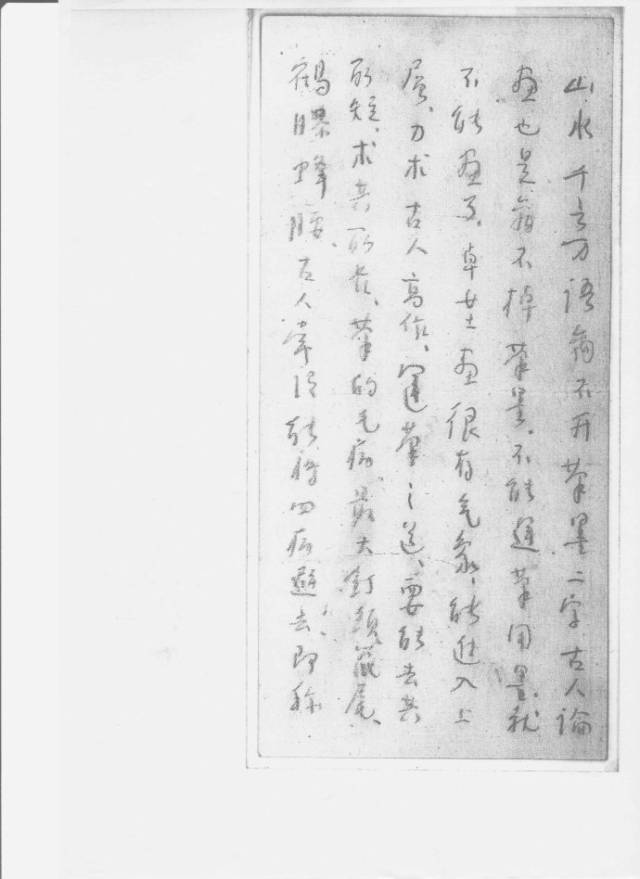 山水千言万语离不开笔墨二字古人论
画也是离不掉笔墨、不能运笔用墨、就
不能画了、卓女士画很有气象、能进入上
层、力求古人高作、运笔之道、要能去其
所短、求其所长、笔的毛病最大钉头鼠尾、
鹤膝蜂腰、古人常说能将四病避去、即称